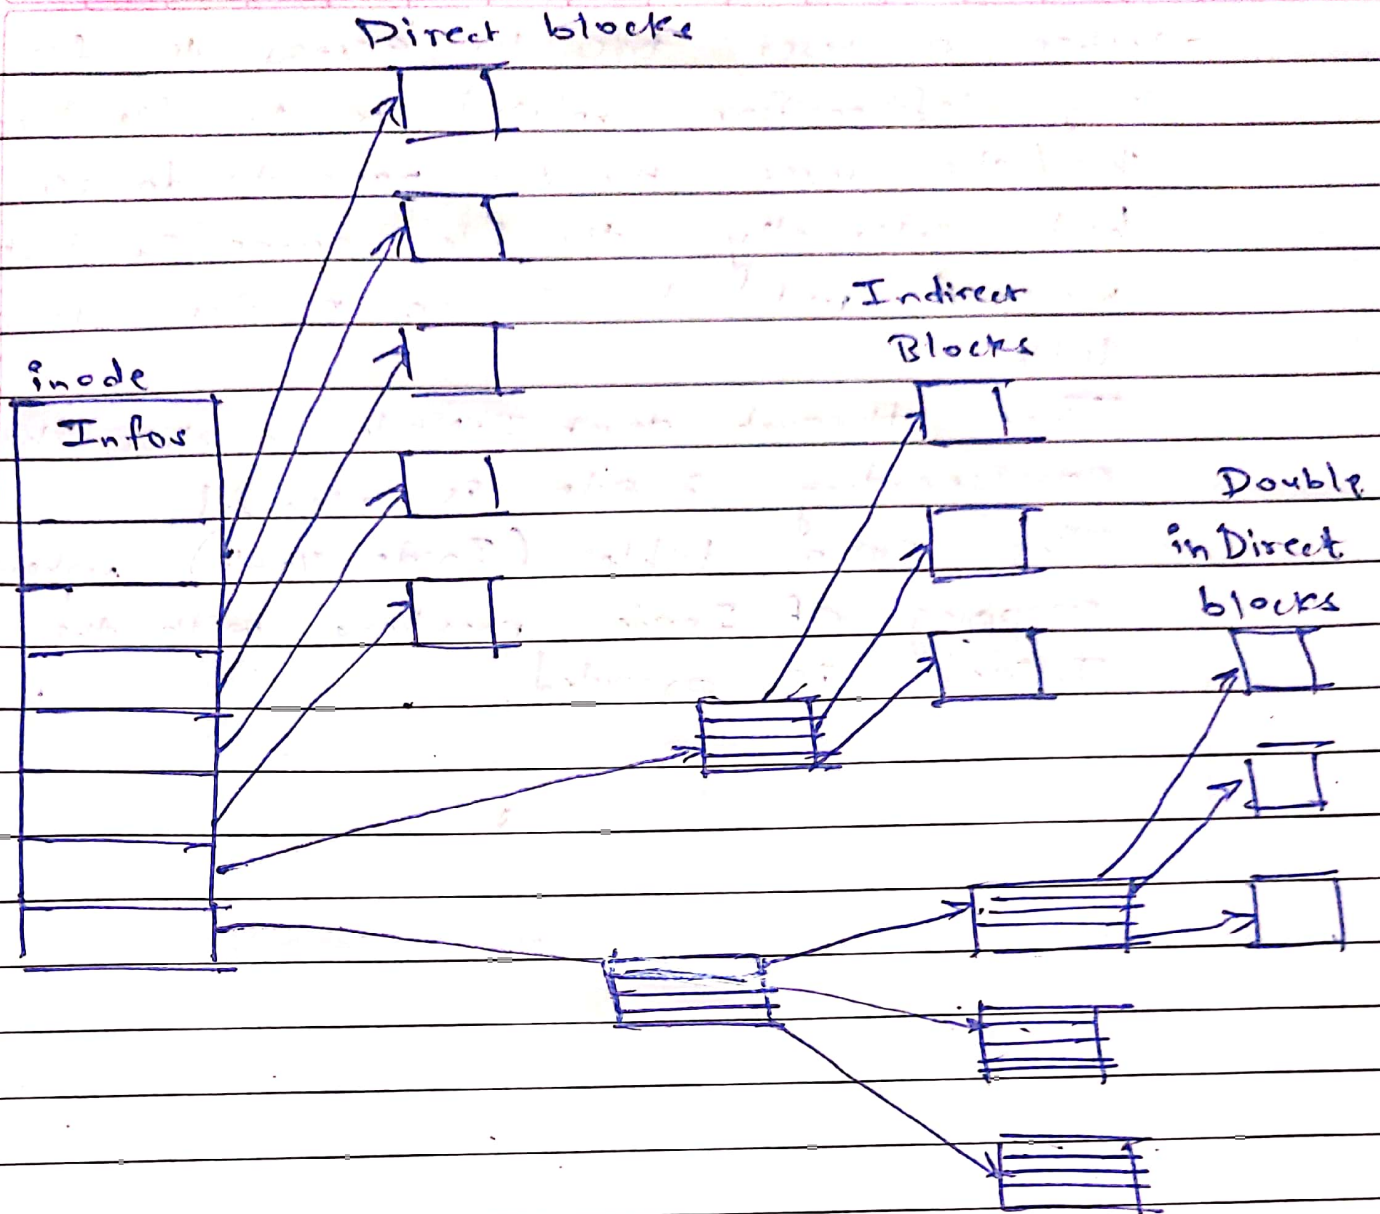 Direct blocks
Indirect
Blocks
inode
Infos
Double
inDirect
blocks